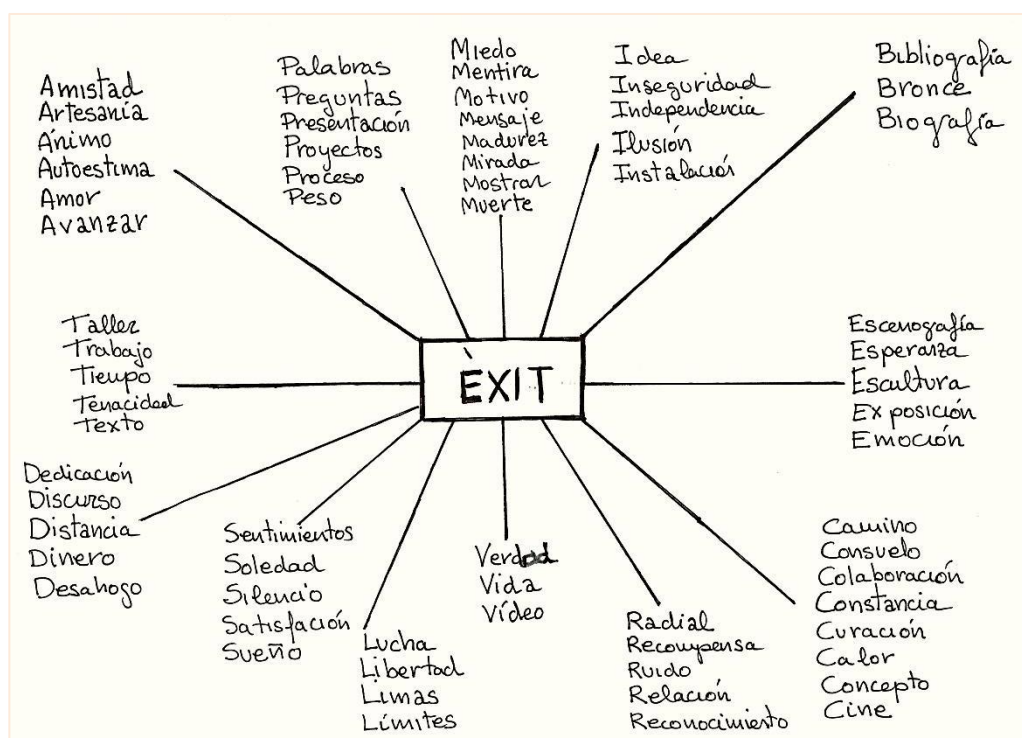 Amistad
Artesanía
Ánimo
Autoestima
Amor
Avanzar
Palabras
Preguntas
Presentación
Proyectos
Proceso
Peso
Miedo
Mentira
Motivo
Mensaje
Madurez
Mirada
Mostrar
Muerte
Idea
Inseguridad
Independencia
Ilusión
Instalación
Bibliografía
Bronce
Biografía
Taller
Trabajo
Tiempo
Tenacidad
Texto
ÈXIT
Escenografía
Esperanza
Escultura
Exposición
Emoción
Dedicación
Discurso
Distancia
Dinero
Desahogo
Sentimientos
Soledad
Silencio
Satisfacción
Sueño
Lucha
Libertad
Limas
Límites
Verdad
Vida
Vídeo
Radial
Recompensa
Ruido
Relación
Reconocimiento
Camino
Consuelo
Colaboración
Constancia
Curación
Calor
Concepto
Cine